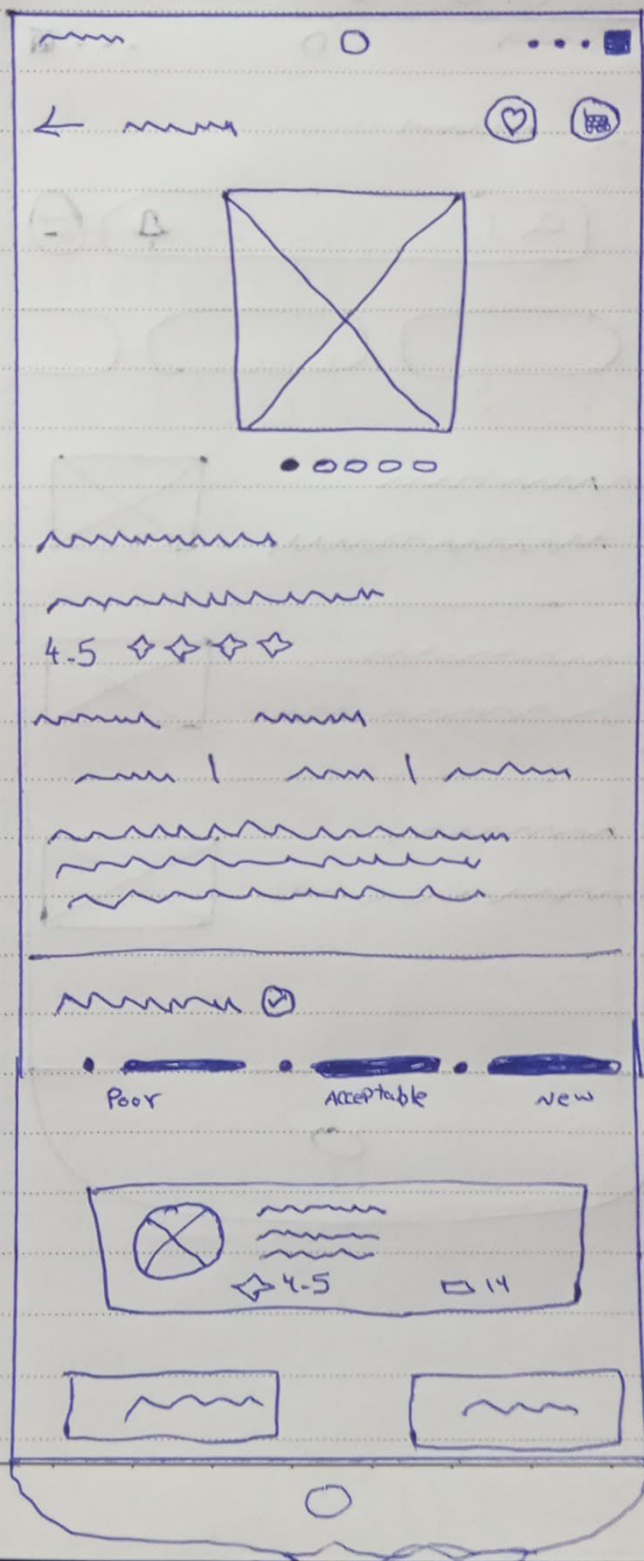 4.5
Poor Acceptable New
4.5 14